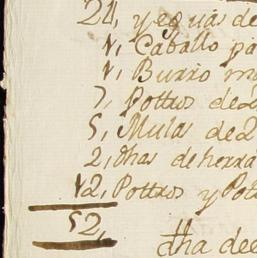 24, yeguas de
1, Caballo pa
1, Burro ma
7, Pottros de 2
5, Mulas de 2
2, dhas de herra
12, Pottros y Pot
52,
dha dee